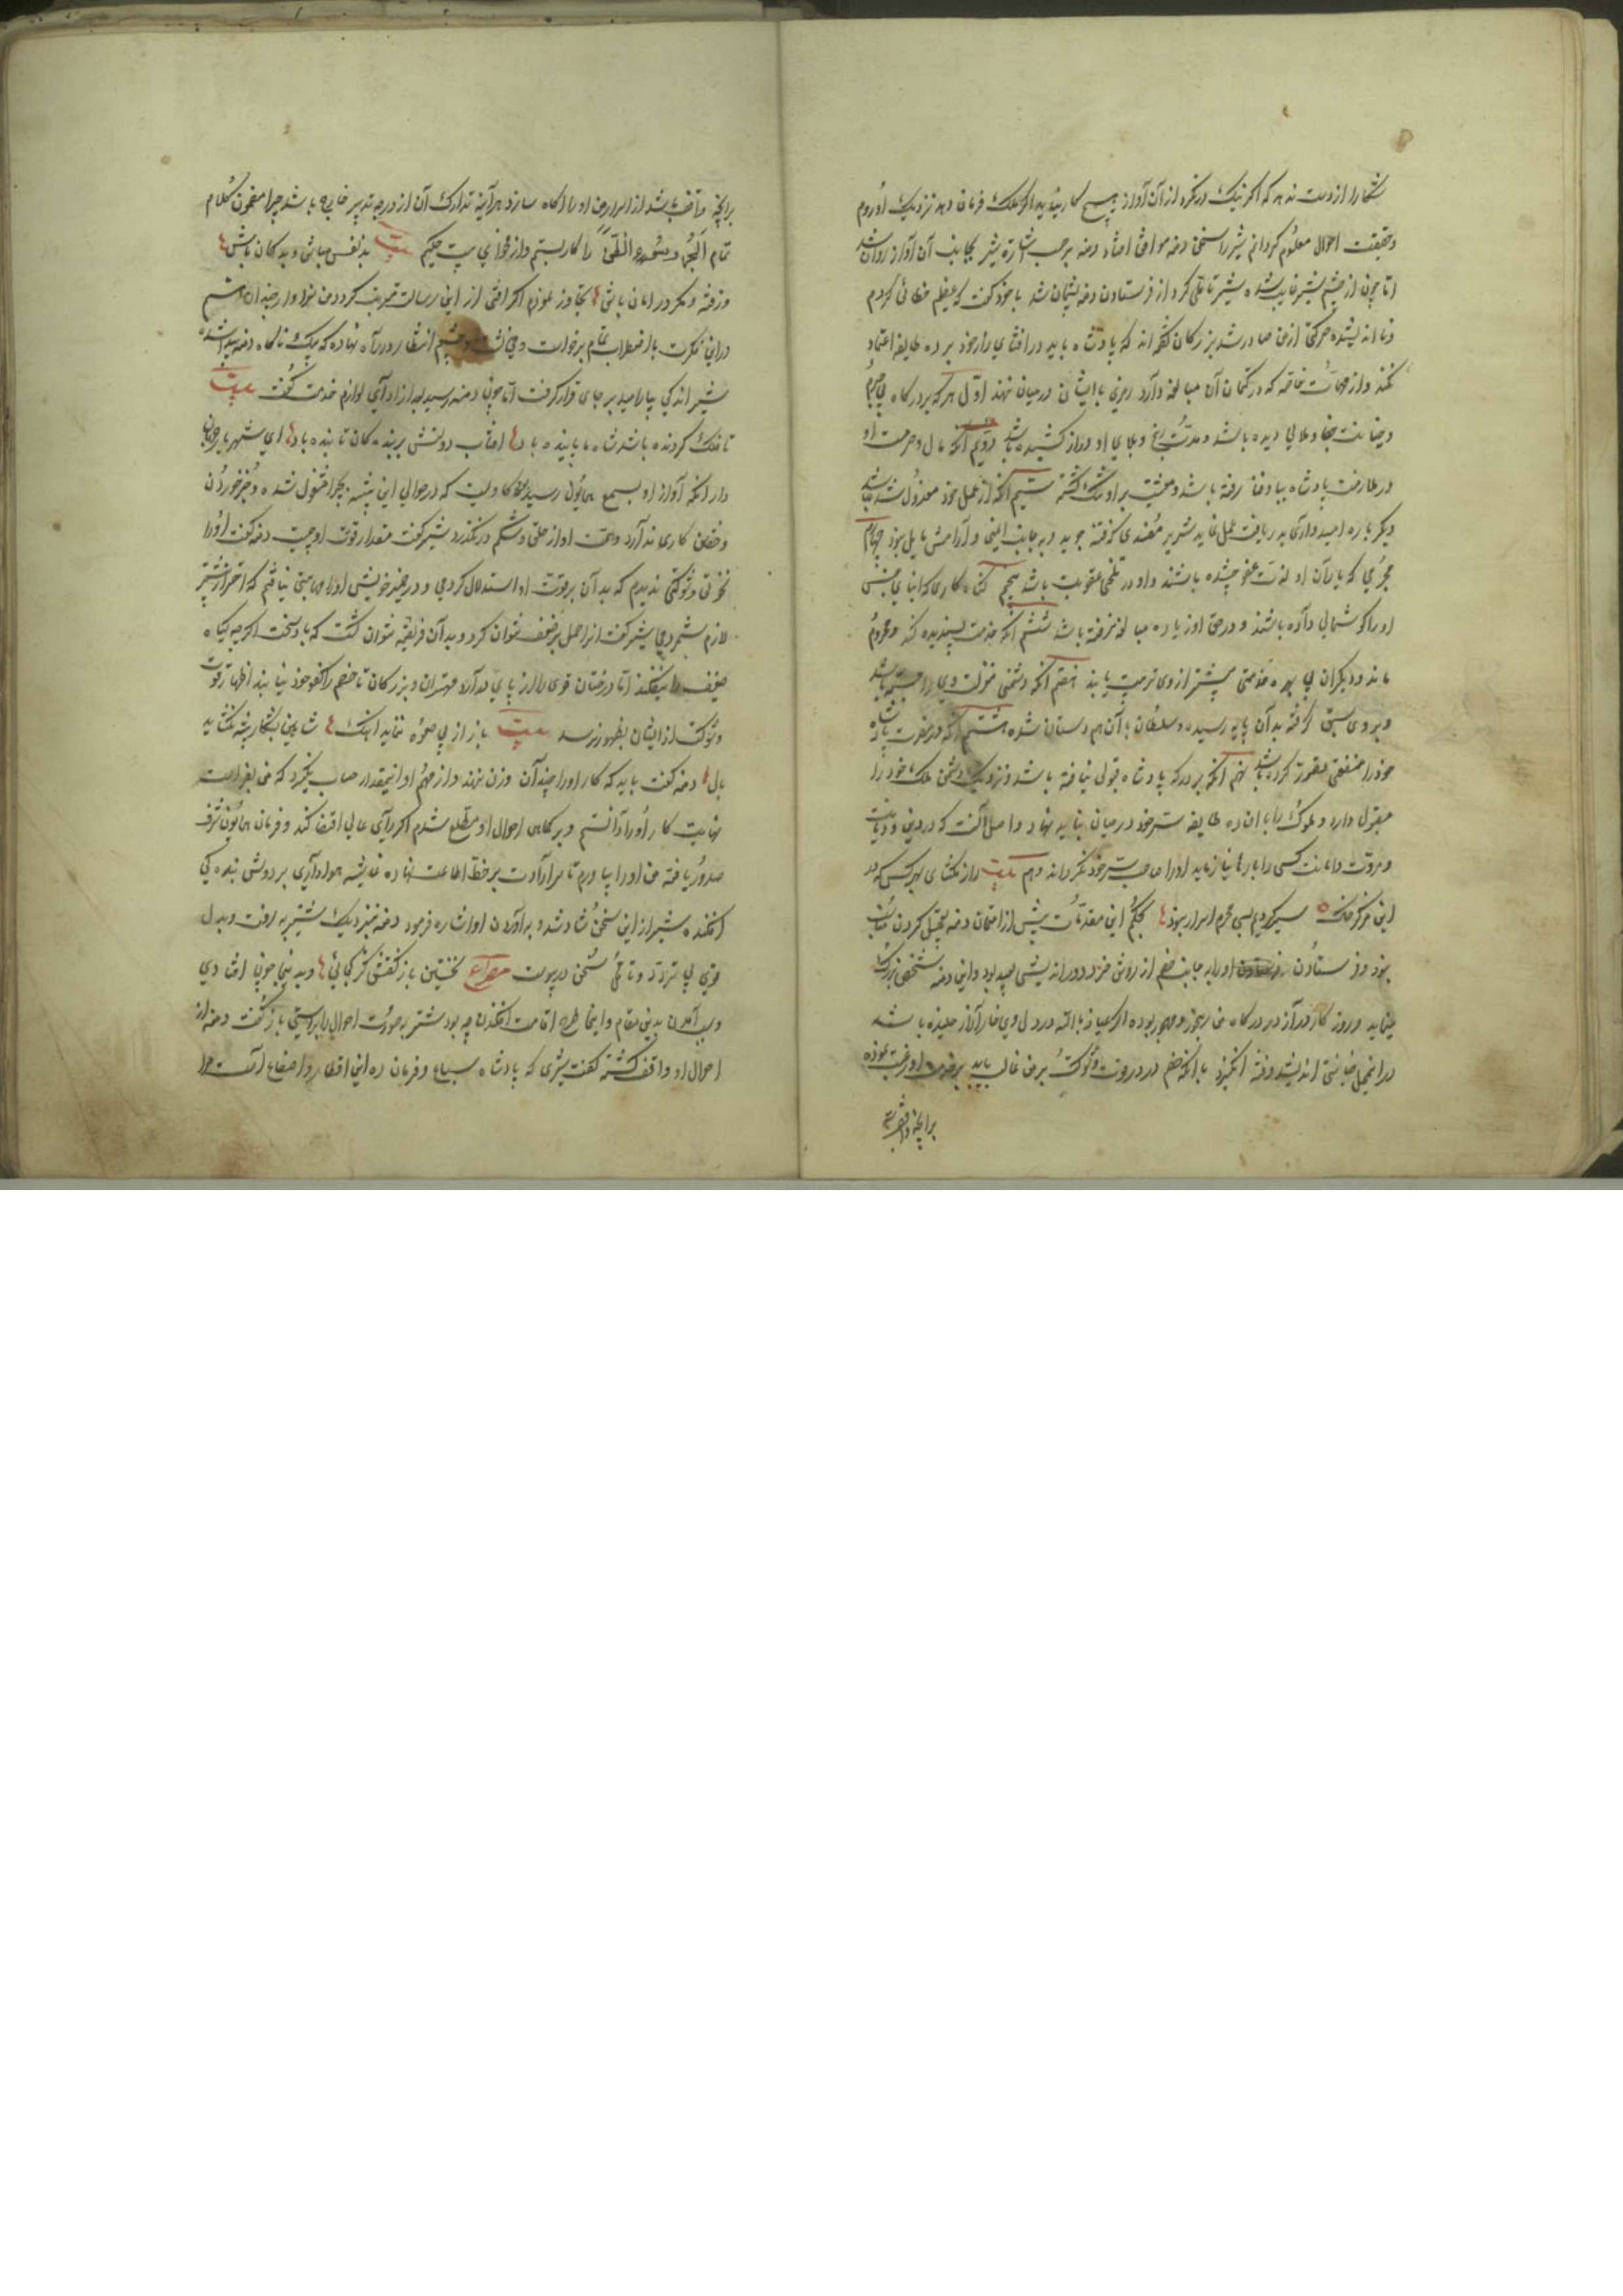 شکار از دست ندهد که اگر نیک درنگرد از آن آواز هیچ کار نیاید اگر ملک فرمان دهد نزدیک او روم
و حقیقت احوال معلوم گردانم شیر را سخن دمنه موافق افتاد دمنه برحسب اشارت شیر بجانب آن آواز روان شد
اما چون از چشم شیر غایب شد شیر تأملی کرد از فرستادن دمنه پشیمان شد با خود گفت که عظیم خطائی کردم
و نااندیشیده حرکتی از من صادر شد بزرگان گفته‌اند که پادشاه باید در افشای راز خود بر ده طایفه اعتماد
نکند و از مهمات خاصه که در کتمان آن مبالغه دارد رمزی با ایشان در میان ننهد اول هر که بر درگاه بی جرم
و جنایت جفا و ملالی دیده باشد و مدت رنج و بلای او دراز کشیده باشد دویم آنکه مال و حرمت او
در ملازمت پادشاه بباد فنا رفته باشد و معیشت بر او تنگ گشته سیم آنکه از عمل خود معزول شده باشد
دیگر باره امیدواری بدریافت عمل ندارد شریر مفسدی که فتنه جوید و بجانب ایمنی و آرامش مایل نبود چهارم
مجرمی که یاران او لذت عفو چشیده باشند و او در تلخی عقوبت باشد پنجم گناه کاری که ابنای جنس
او را گوشمالی داده باشند و در حق او زیاده مبالغه رفته باشد ششم آنکه خدمت پسندیده کند و محروم
ماند و دیگران بی بهره خدمتی بیشتر از وی تربیت یابند هفتم آنکه دشمنی منزلت وی را جسته باشد
و بر وی سبق گرفته بدان پایه رسیده و سلطان با آن همداستان شده هشتم آنکه در مضرت پادشاه
خود را منفعتی تصور کرده باشد نهم آنکه بر درگه پادشاه قبولی نیافته باشد و نزدیک دشمن ملک خود را
مقبول دارد و ملوک را با این ده طایفه سر خود در میان نباید نهاد و اصل آنست که در دین و دیانت
و مروت و امانت کسی را بارها نیازماید او را صاحب سر خود نگرداند دهم بیت راز مگشای بهر کس که در
این مرکز خاک سیر کردیم بسی محرم اسرار نبود بحکم این مقدمات پیش از امتحان دمنه تعجیل کردن مناسب
نبود و فرستادن او را بجانب خصم از روش خرد و دوراندیشی بعید بود و این دمنه شخصی زیرک
می‌نماید و روز گار دراز در درگاه من رنجور و مهجور بوده اگر عیاذا بالله در دل وی خار آزار خلیده باشد
در این محل خیانتی اندیشد و فتنه انگیزد یا آنکه خصم در قوت و شوکت بر من غالب یابد بخدمت او رغبت نموده
برآنچه واقف باشد
برآنچه واقف باشد از اسرار من او را آگاه سازد هر آینه تدارک آن از درجه تدبیر خارج باشد چرا مضمون کلام
تمام الحزم و سوء الظن را کار نبستم و از فحوای بیت حکیم بیت بدنفس مباش و بدگمان باش
وز فتنه و مکر در امان باش تجاوز نمودم اگر آفتی از این رسالت مترتب گردد من سزاوار چندانم شیر
در این فکرت باضطراب تمام برخاست و می‌نشست و چشم انتظار در راه نهاده که یک ناگاه دمنه پیدا شده
شیر اندکی بیارامید بر جای قرار گرفت اما چون دمنه رسید بعد از ادای لوازم خدمت گفت بیت
تا فلک گردنده باشد شاه ما پاینده باد آفتاب دولتش بر بندگان تابنده باد ای شهریار جهان
دار آنکه آواز او بسمع همایون رسید گاویست که در حوالی این بیشه بچرا مشغول شده و جز خوردن
و خفتن کاری نداند و همت او از حلق و شکم درنگذرد شیر گفت مقدار قوت او چیست دمنه گفت او را
نخوتی و شوکتی ندیدم که بدان بر قوت او استدلال کردمی و در ضمیر خویش او را مهابتی نیافتم که احترام بیشتر
لازم شمردمی شیر گفت آنرا حمل بر ضعف نتوان کرد و بدان فریفته نتوان گشت که باد سخت اگرچه گیاه
ضعیف را نیفکند اما درختان قوی را از پای درآرد مهتران و بزرگان تا خصم را کفو خود نیابند اظهار قوت
و شوکت از ایشان بظهور نرسد بیت باز از پی صعوه ننماید آهنگ شاهین بشکار پشه نگشاید
بال دمنه گفت باید که کار او را چندان وزن ننهند و از مهم او اینمقدار حساب نگیرد که من بفراست
نهایت کار او را دانستم و بر تمامی احوال او مطلع شدم اگر رأی عالی اقتضا کند و فرمان همایون شرف
صدور یافته من او را بیاورم تا سر ارادت بر خط اطاعت نهاده غاشیه هواداری بر دوش بندگی
افکنده شیر از این سخن شاد شد و بآوردن او اشاره فرمود دمنه نزدیک شنزبه رفت و بدل
قوی بی تردد و تامل سخن درپیوست مصراع نخستین باز گفتش کز کجائی و بدینجا چون افتادی
و سبب آمدن بدین مقام و اینجا طرح اقامت افکندن چه بود شنزبه صورت احوال را براستی باز گفت دمنه از
احوال او واقف گشته گفت شیری که پادشاه سباع و فرمان ده این اقطار و اصقاع است مرا